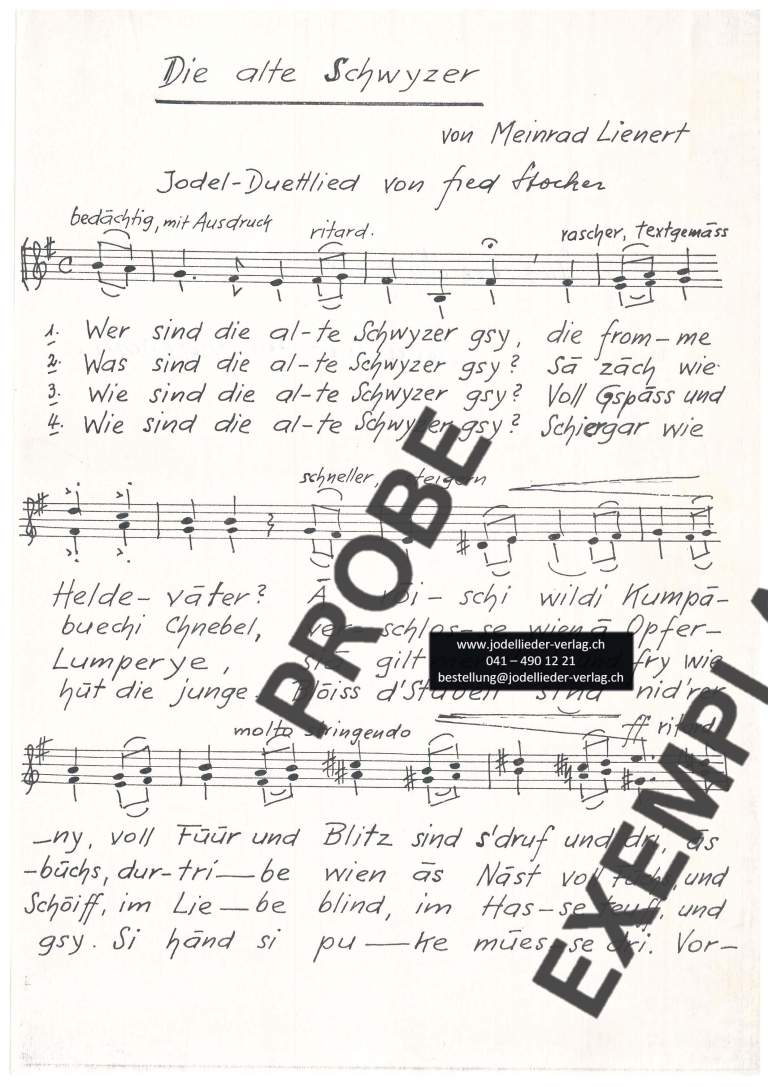 Die alte Schwyzer
von Meinrad Lienert
Jodel-Duettlied von Fred Stocker
bedächtig, mit Ausdruck ritard. rascher, textgemäss
1. Wer sind die al-te Schwyzer gsy, die from-me
2. Was sind die al-te Schwyzer gsy? Sā zāch wie
3. Wie sind die al-te Schwyzer gsy? Voll Gspāss und
4. Wie sind die al-te Schwyzer gsy? Schiergar wie
schneller, steigern
Helde-vāter? Ā schi wildi Kumpā-
buechi Chnebel, ver-schlos-se wienā Opfer-
Lumperye, gilt fry wie
hüt die junge. d'Stuben sind nid
molto stringendo ff ritard
-ny, voll Füür und Blitz sind s'druf und dri, ās
-büchs, dur-tri-be wien ās Nāst voll und
Schöiff, im Lie-be blind, im Has-se und
gsy. Si hānd si pu-ke mües-se dri. Vor-
PROBE
EXEMPLA
www.jodellieder-verlag.ch
041 – 490 12 21
bestellung@jodellieder-verlag.ch